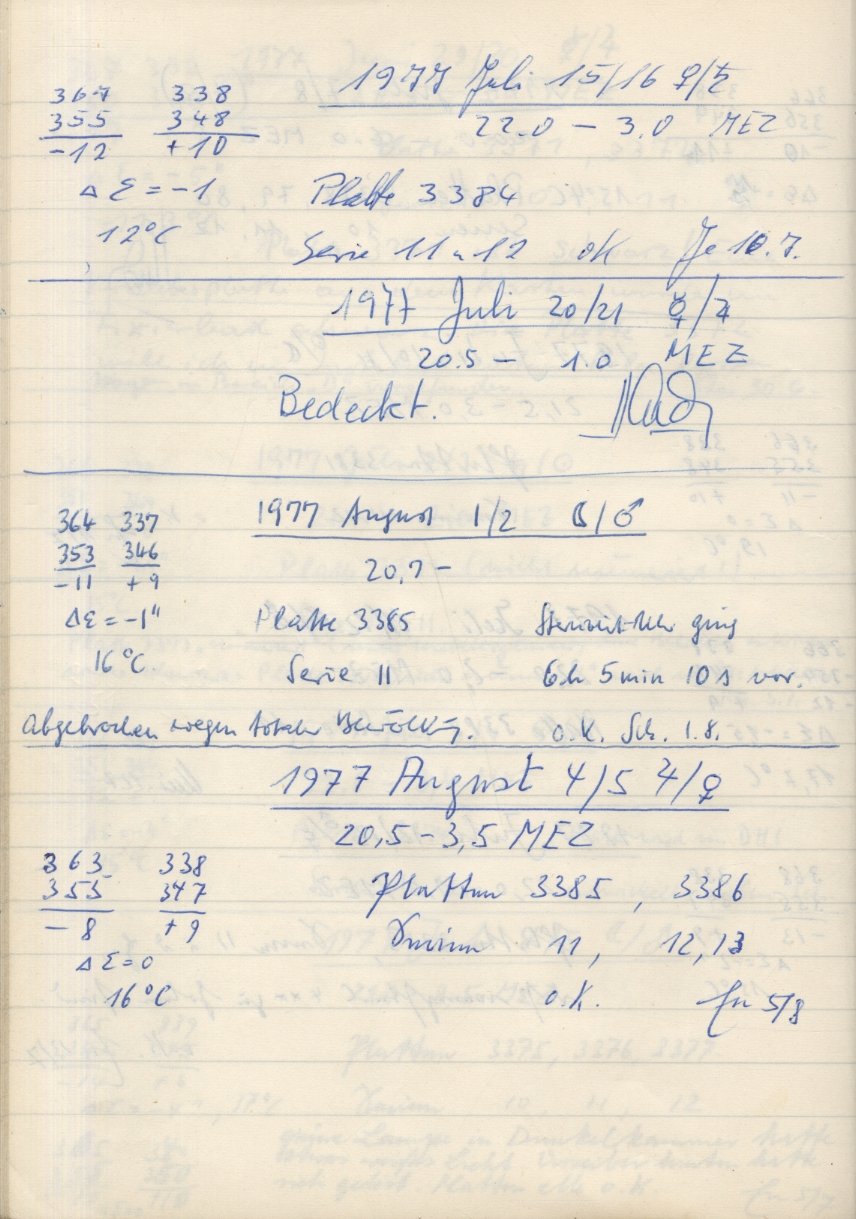 1977 Juli 15/16 ♀/♄
22.0 – 3.0 MEZ
367 338
355 348
-12 +10
Δ Σ = -1 Platte 3384
12°C Serie 11 u 12 OK
1977 Juli 20/21 ☿/♃
20.5 – 1.0 MEZ
Bedeckt.
1977 August 1/2 ☾/♂
364 337
353 346
-11 +9
20,7 –
Δε = -1" Platte 3385 ging
16°C Serie 11 6h 5min 10s vor.
Abgebrochen wegen totaler Bewölkg. o.K. Sch. 1.8.
1977 August 4/5 ♃/♀
20,5 – 3,5 MEZ
363 338
355 347
-8 +9
Platten 3385, 3386
Serien 11, 12, 13
Δ Σ = 0
16°C o.K. 5/8